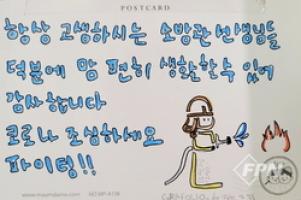 POSTCARD
항상 고생하시는 소방관 선생님들
덕분에 맘 편히 생활할수 있어
감사합니다
코로나 조심하세요
파이팅!!
FPN
www.maumdama.com